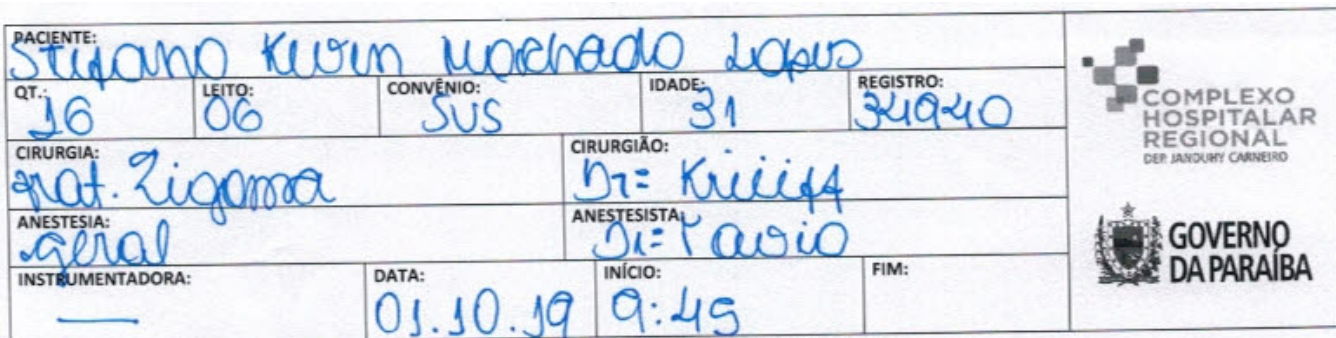 PACIENTE: Machado Lopes
QT.: 16 LEITO: 06 CONVÊNIO: SUS IDADE: 31 REGISTRO: 34940
CIRURGIA: Zigoma CIRURGIÃO: Dr=
ANESTESIA: geral ANESTESISTA:
INSTRUMENTADORA: — DATA: 01.10.19 INÍCIO: 9:45 FIM:
COMPLEXO
HOSPITALAR
REGIONAL
DEP. JANDUHY CARNEIRO
GOVERNO
DA PARAÍBA